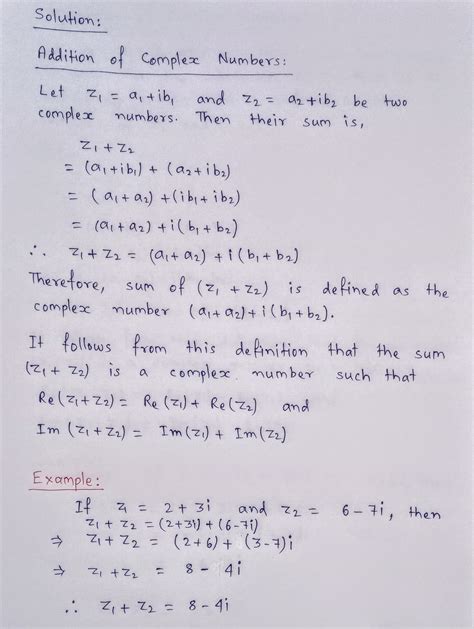 Solution:
Addition of Complex Numbers:
Let z₁ = a₁+ib₁ and z₂ = a₂+ib₂ be two
complex numbers. Then their sum is,
z₁+z₂
= (a₁+ib₁) + (a₂+ib₂)
= (a₁+a₂) +(ib₁+ib₂)
= (a₁+a₂) + i(b₁+b₂)
∴ z₁+z₂ = (a₁+a₂) + i(b₁+b₂)
Therefore, sum of (z₁+z₂) is defined as the
complex number (a₁+a₂)+i(b₁+b₂).
It follows from this definition that the sum
(z₁+z₂) is a complex number such that
Re(z₁+z₂) = Re(z₁)+Re(z₂) and
Im (z₁+z₂) = Im(z₁) + Im(z₂)
Example:
If z₁ = 2+3i and z₂ = 6-7i, then
z₁+z₂ = (2+3i)+(6-7i)
⇒ z₁+z₂ = (2+6) + (3-7)i
⇒ z₁+z₂ = 8-4i
∴ z₁+z₂ = 8-4i